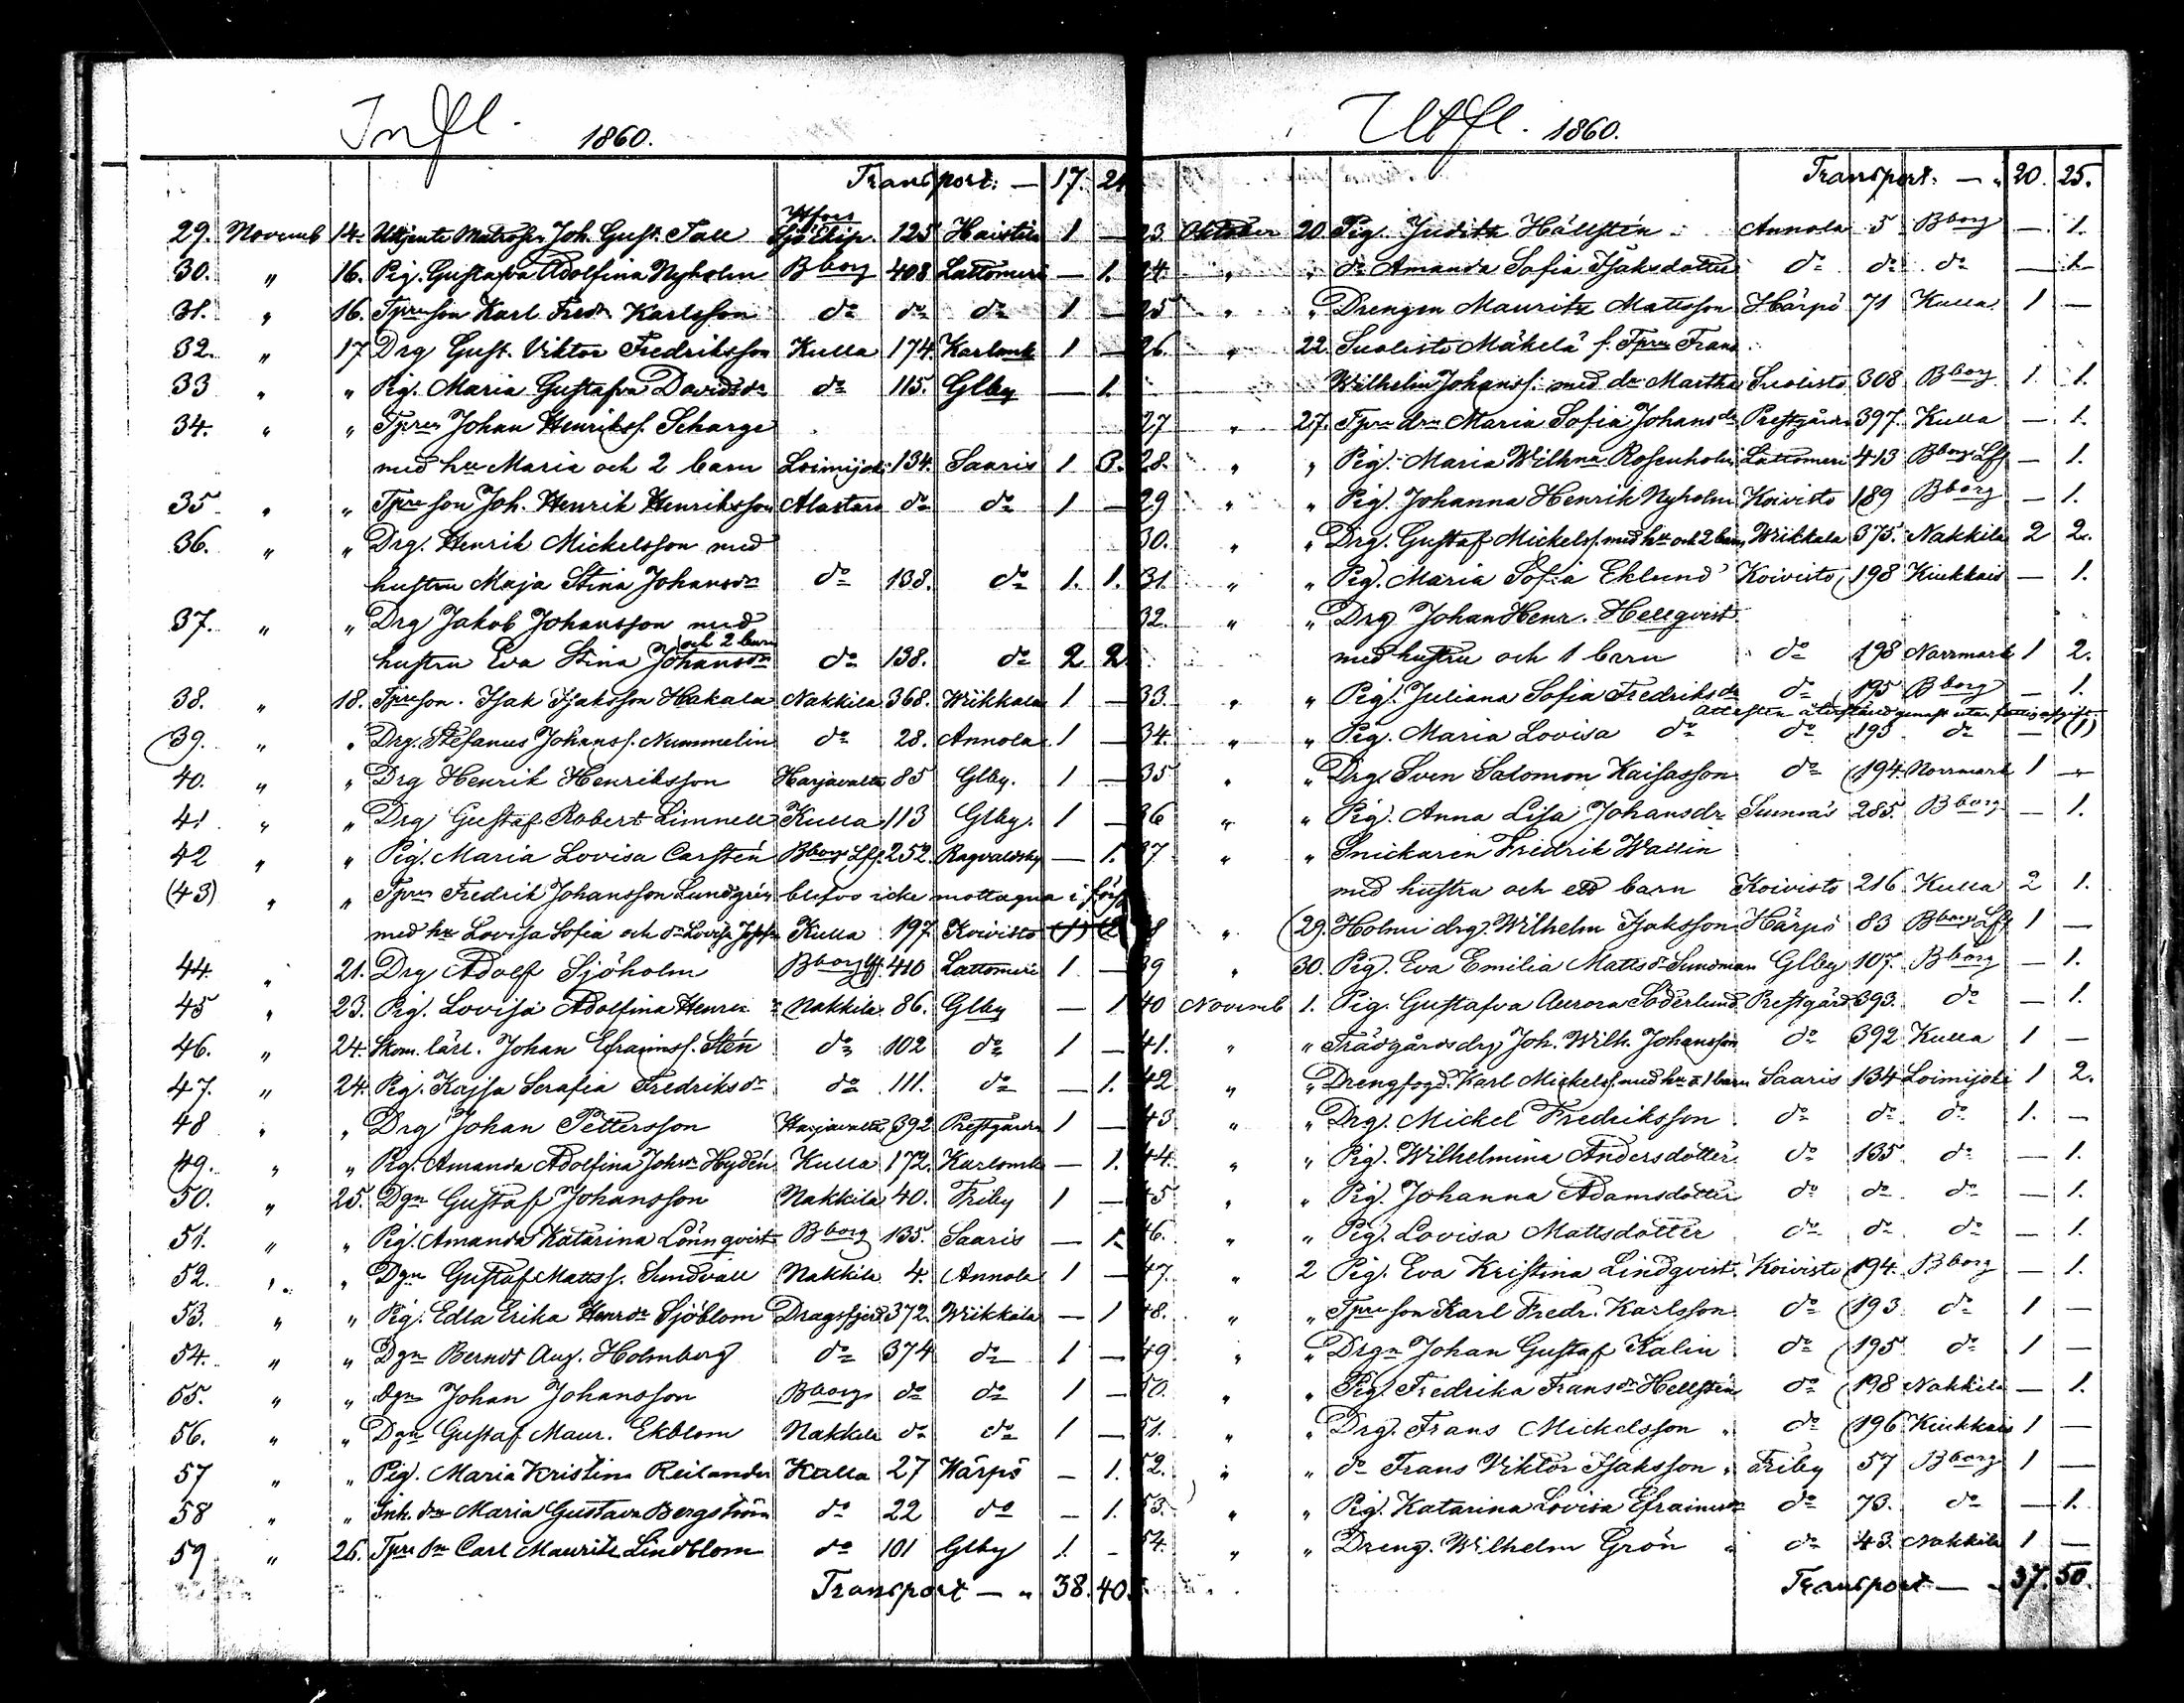 Infl. 1860.
Transport. — 17. 24
29. Novemb 14. Utkjente Matrosen Joh. Gust. Tall Hfors Sjöekip. 125 Haistila 1 —
30. " 16. Pig. Gustafva Adolfina Nyholm Bborg 408 Lattomeri — 1.
31. " 16. Tpreson Karl Fredr Karlsson do do do 1 —
32. " 17 Drg Gust. Viktor Fredriksson Kulla 174 Karlsmk 1 —
33 " " Pig. Maria Gustafva Davidsdr do 115. Glby — 1.
34. " " Tpren Johan Henrikss. Scharge
med hu Maria och 2 barn Loimijoki 134. Saaris 1 3.
35 " " Tpreson Joh. Henrik Henriksson Alastaro do do 1 —
36. " " Drg. Henrik Mickelsson med
hustru Maja Stina Johansdr do 138. do 1. 1.
37. " " Drg Jakob Johansson med
hustru Eva Stina Johansdr och 2 barn do 138. do 2 2
38. " 18. Tpreson. Isak Isaksson Hakala Nakkila 368. Wiikkala 1 —
39. " " Drg. Stefanus Johanss. Nummelin do 28. Annola 1 —
40. " " Drg Henrik Henriksson Harjavalta 85 Glby. 1 —
41 " " Drg Gustaf Robert Limnell Kulla 113 Glby. 1 —
42 " " Pig. Maria Lovisa Carstén Bborg Lff 252. Ragvaldsby — 1.
(43) " " Tpren Fredrik Johansson Lundgrén blefvo icke mottagna i förs
med hu Lovisa Sofia och dr Lovisa Josefa Kulla 197 Koivisto (1) (2
44. " 21. Drg Adolf Sjöholm Bborg Lff. 410 Lattomeri 1 —
45 " 23. Pig. Lovisa Adolfina Henrdr Nakkila 86. Glby — 1
46. " 24. Skom. lärl. Johan Efraimss. Stén do 102 do 1 —
47. " 24. Pig. Kajsa Serafia Fredriksdr do 111. do — 1.
48 " " Drg Johan Pettersson Harjavalta 392 Prestgården 1 —
49. " " Pig. Amanda Adolfina Johsdr Hydén Kulla 172. Karlsmk — 1.
50. " 25. Dgn Gustaf Johansson Nakkila 40. Friby 1 —
51. " " Pig. Amanda Katarina Lönnqvist Bborg 135. Saaris — 1.
52. " " Dgn Gustaf Matss. Sundvall Nakkila 4. Annola 1 —
53. " " Pig. Edla Erika Henrdr Sjöblom Dragsfjerd 372. Wiikkala — 1
54. " " Dgn Bernds Aug. Holmberg do 374 do 1 —
55. " " Dgn Johan Johansson Bborg do do 1 —
56. " " Dgn Gustaf Maur. Ekblom Nakkila do do 1 —
57 " " Pig. Maria Kristina Reilander Kulla 27 Härpö — 1.
58 " " Inh. dr Maria Gustava Bergström do 22 do — 1.
59 " 26. Tpre sn Carl Mauritz Lindblom do 101 Glby 1. —
Transport — " 38. 40.
Utfl. 1860.
Transport. — " 20. 25.
23. Oktober 20. Pig. Judith Hällstén Annola 5 Bborg — 1.
24. " " do Amanda Sofia Isaksdotter do do do — 1
25 " " Drengen Mauritz Mattsson Härpö 71 Kulla 1 —
26. " 22. Suolisto Mäkelä f. Tpren Frans
Wilhelm Johanss. med dr Martha Suolisto 308 Bborg 1 1.
27 " 27. Tpre dr Maria Sofia Johansdr Prestgården 397. Kulla — 1.
28. " " Pig. Maria Wilhna Rosenholm Lattomeri 413 Bborg Lff — 1.
29 " " Pig. Johanna Henrik Nyholm Koivisto 189 Bborg — 1.
30. " " Drg. Gustaf Mickelss. med hu och 2 barn Wiikkala 375. Nakkila 2 2.
31. " " Pig. Maria Sofia Eklund Koivisto 198 Kiukkais — 1.
32. " " Drg Johan Henr. Hellqvist
med hustru och 1 barn do 198 Norrmark 1 2.
33. " " Pig. Juliana Sofia Fredriksdr do 195 Bborg — 1.
34. " " Pig. Maria Lovisa do do 195 do — (1)
35 " " Drg. Sven Salomon Kaisasson do 194. Norrmark 1 —
36 " " Pig. Anna Lisa Johansdr Sunnäs 285. Bborg — 1.
37 " " Snickaren Fredrik Wallin
med hustru och ett barn Koivisto 216 Kulla 2 1.
38 " (29. Holmi drg. Wilhelm Isaksson Härpö 83 Bborg Lff 1 —
39 " 30. Pig. Eva Emilia Mattsdr Sundman Glby 107. Bborg — 1.
40 Novemb 1. Pig. Gustafva Aurora Söderlund Prestgård 393. do — 1.
41. " " Trädgårdsdrg Joh. Wilh. Johansson do 392 Kulla 1 —
42 " " Drengfogd. Karl Mickelss. med hu o. 1 barn Saaris 134 Loimijoki 1 2.
43 " " Drg. Mickel Fredriksson do do do 1. —
44. " " Pig. Wilhelmina Andersdotter do 135 do — 1.
45 " " Pig. Johanna Adamsdotter do do do — 1.
46. " " Pig. Lovisa Mattsdotter do do do — 1.
47. " 2 Pig. Eva Kristina Lindqvist Koivisto 194. Bborg — 1.
48. " " Tpre son Karl Fredr. Karlsson do 193 do 1 —
49 " " Drgn Johan Gustaf Kalin do 195 do 1 —
50. " " Pig. Fredrika Fransdr Hellstén do 198 Nakkila — 1.
51. " " Drg. Frans Mickelsson do 196 Kiukkais 1 —
52. " " do Frans Viktor Isaksson Friby 57 Bborg 1 —
53. " " Pig. Katarina Lovisa Efraimsdr do 73. do — 1.
54. " " Dreng. Wilhelm Grön do 43. Nakkila 1 —
Transport — " 37. 50.